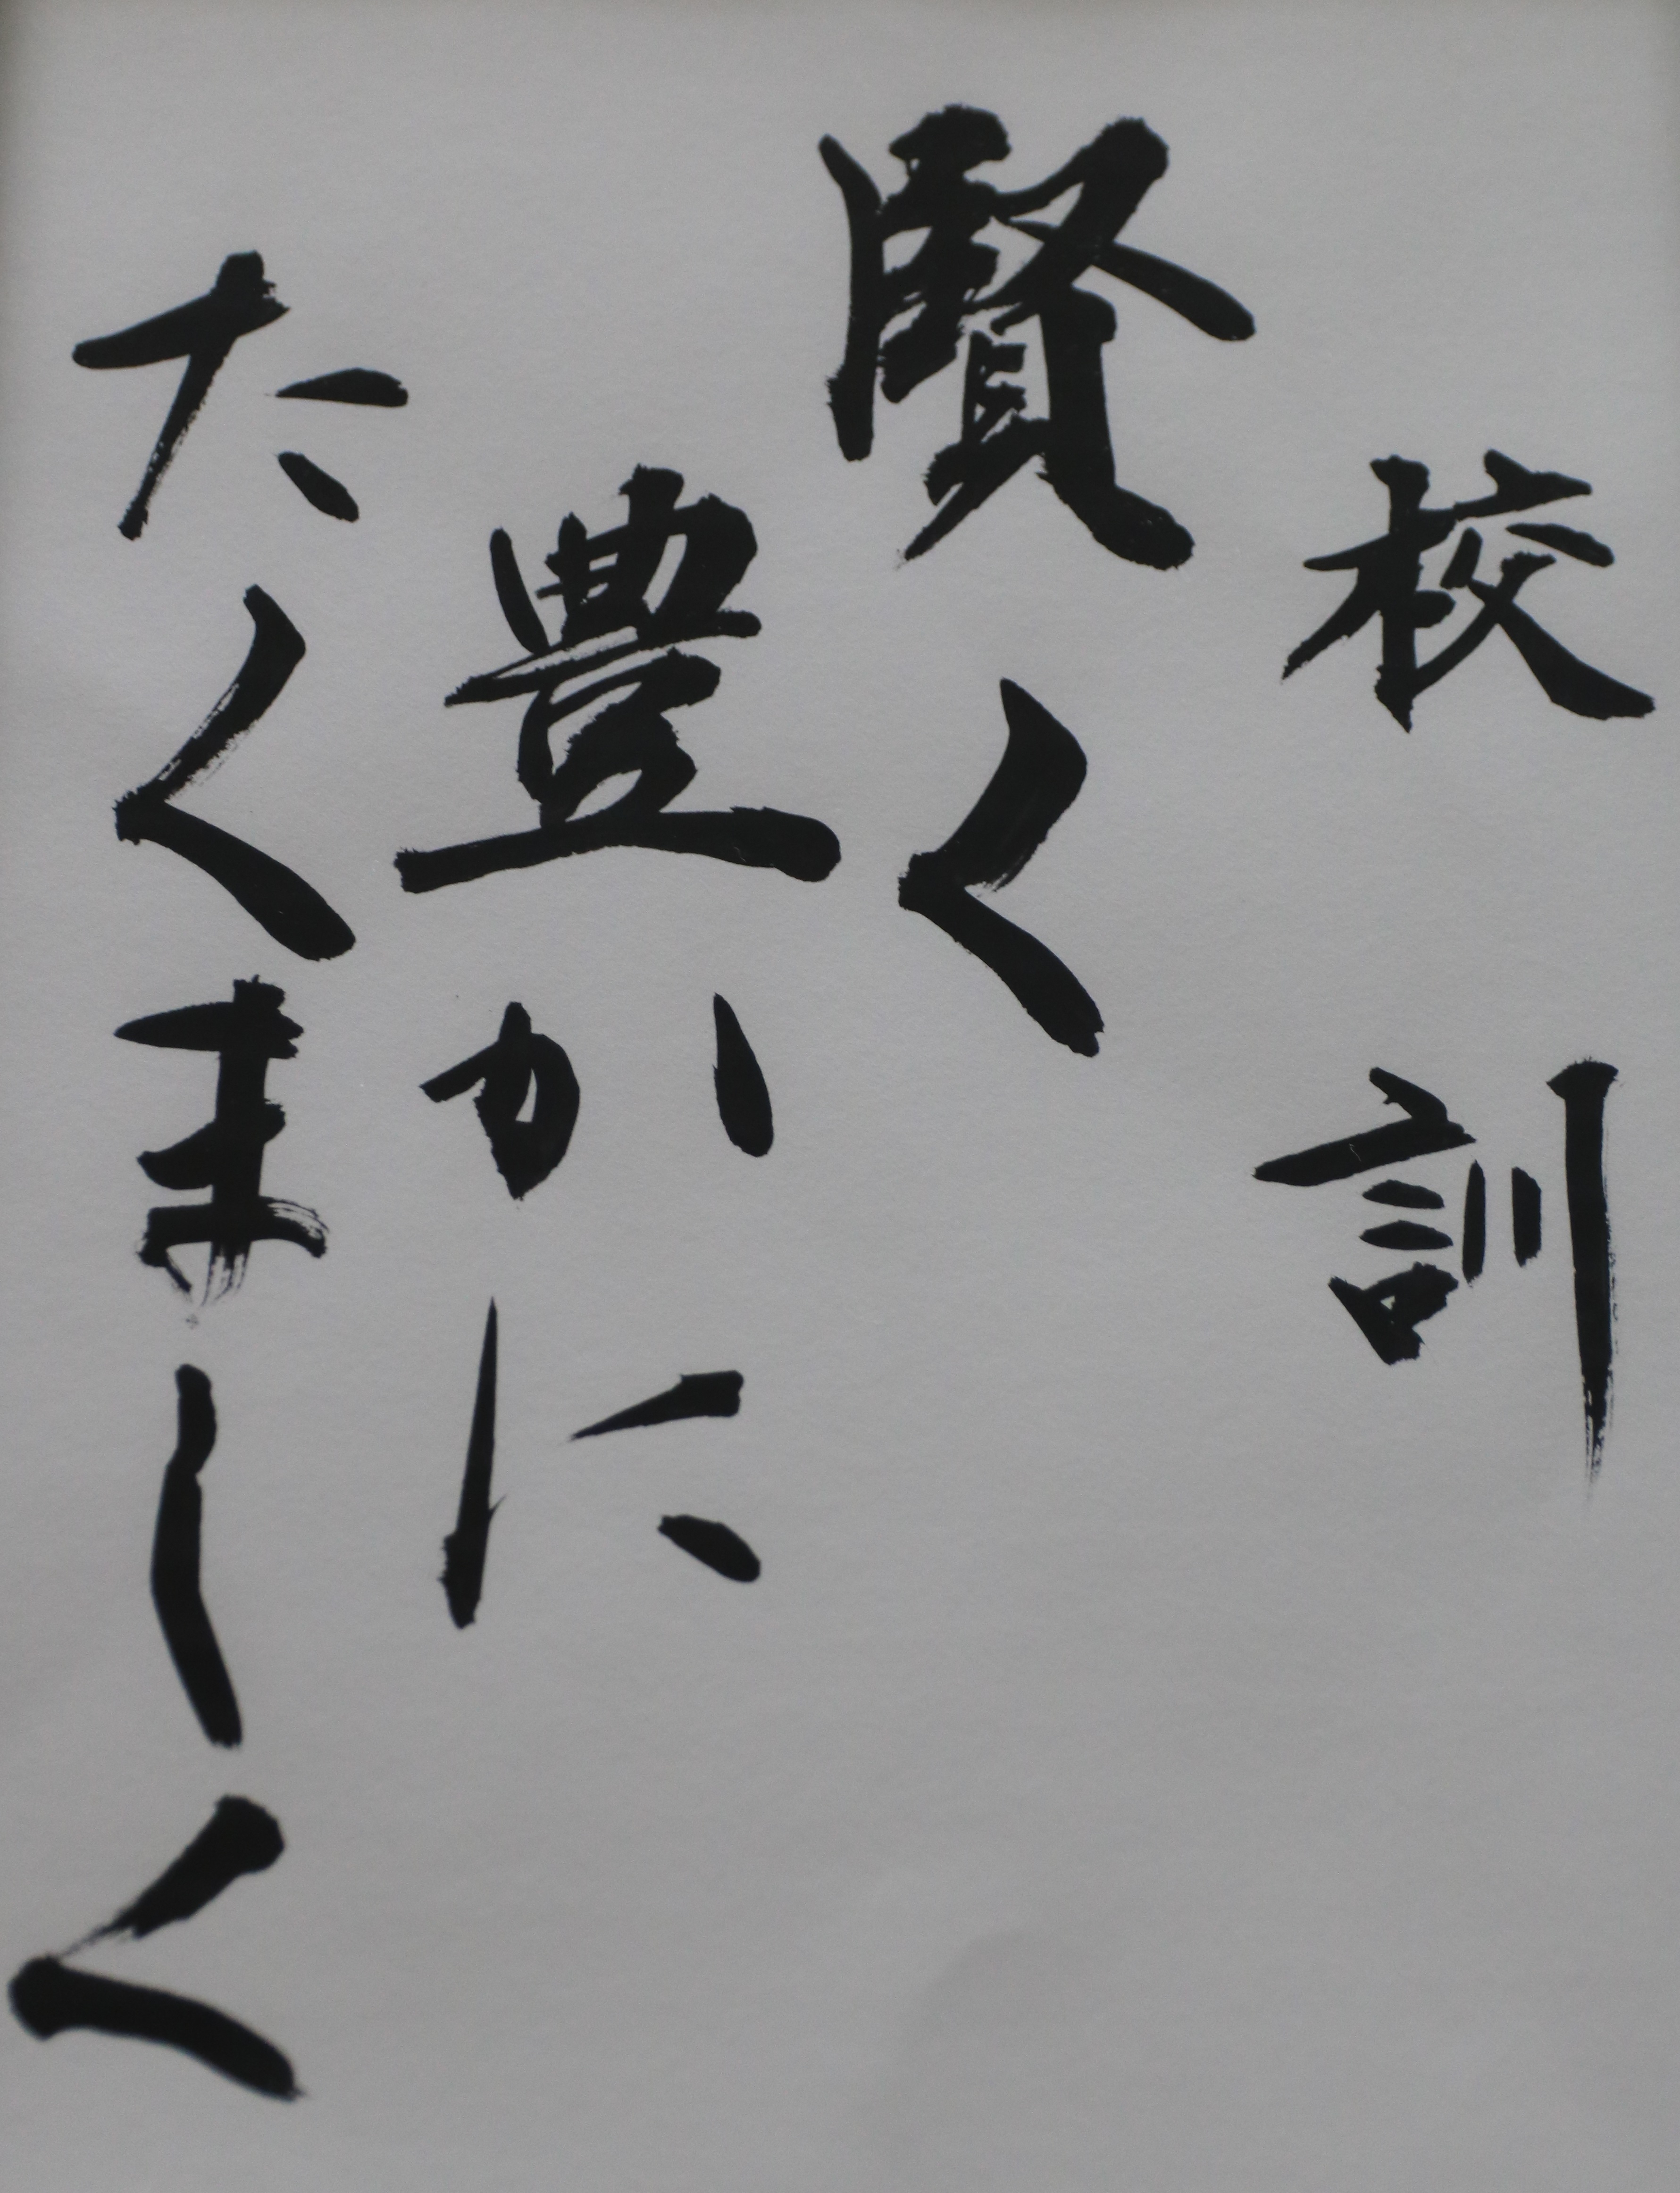 校訓
賢く
豊かに
たくましく